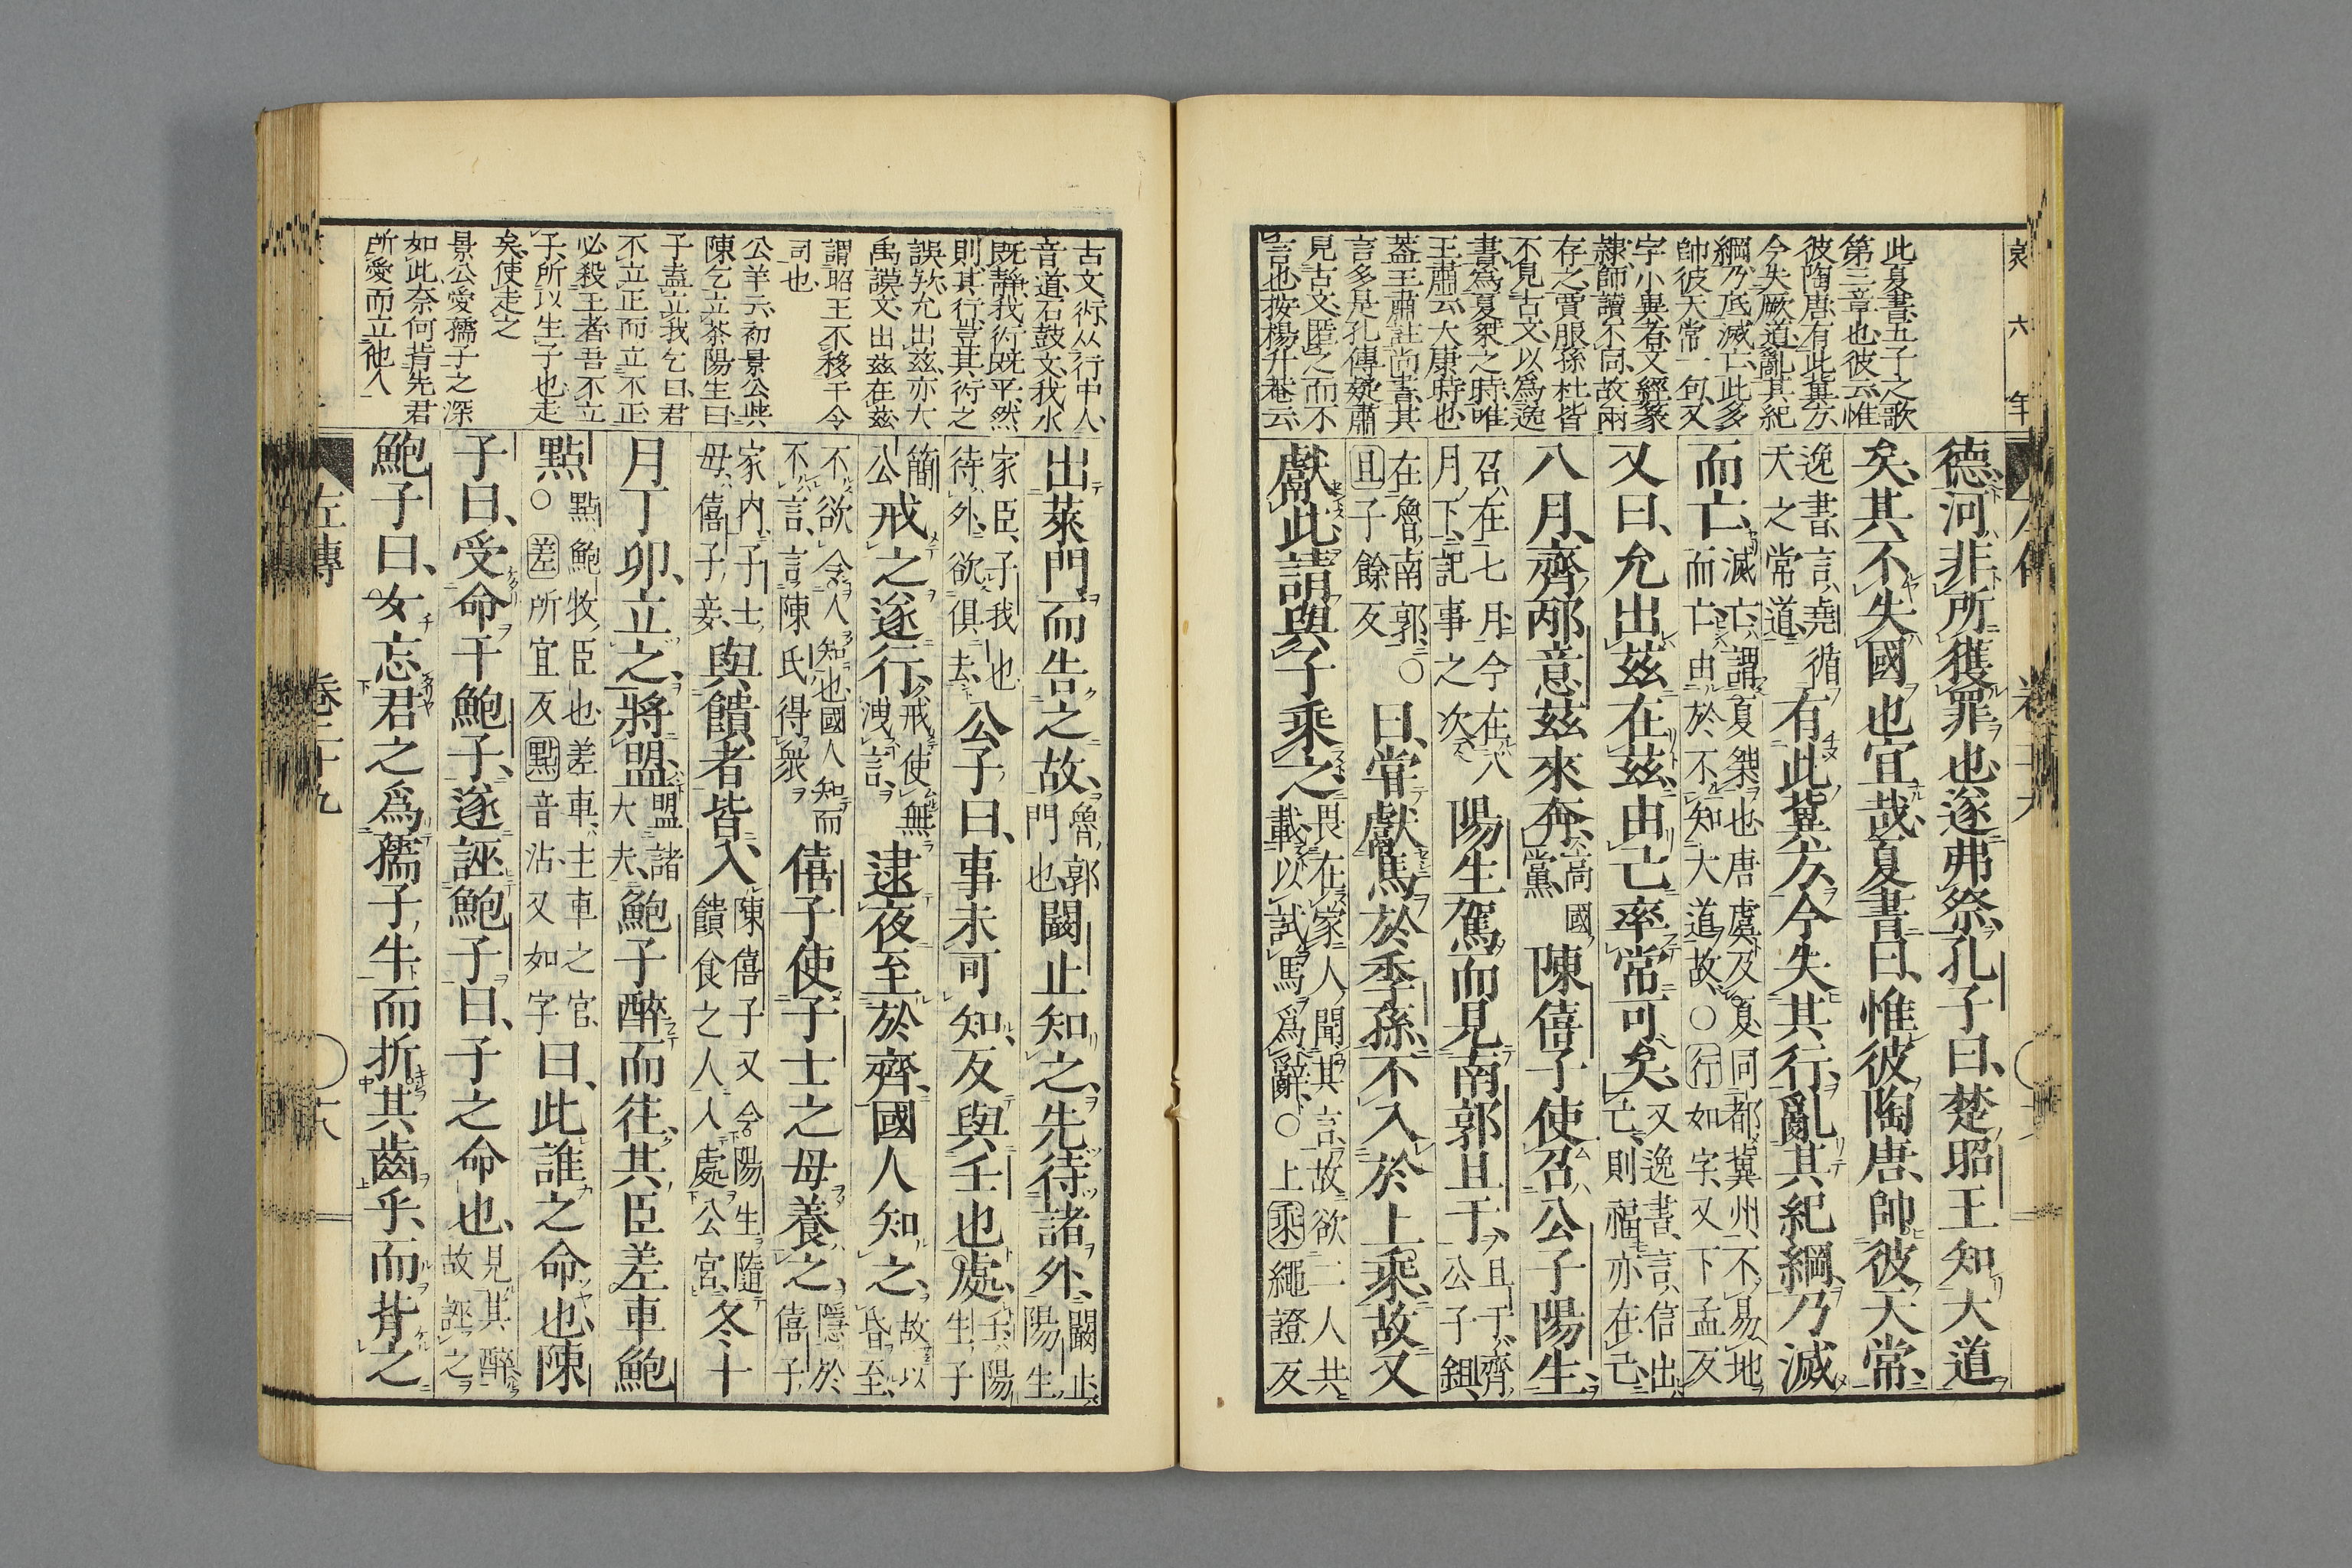 哀六年
此夏書五子之歌
第三章也彼云惟
彼陶唐有此冀方
今失厥道亂其紀
綱乃底滅亡此多
帥彼天常一句又
字小異者文經篆
隸師讀不同故兩
存之賈服孫杜皆
不見古文以爲逸
書爲夏桀之時唯
王肅云大康時也
葢王肅註尚書其
言多是孔傳疑肅
見古文匿之而不
言也按楊升菴云
德河非所獲罪也遂弗祭孔子曰楚昭王知大道
矣其不失國也宜哉夏書曰惟彼陶唐帥彼天常
逸書言堯循天之常道有此冀方今失其行亂其紀綱乃滅
而亡滅亡謂夏桀也唐虞及夏同都冀州不易地而亡由於不知大道故○行如字又下孟反
又曰允出茲在茲由己率常可矣又逸書言信出己則福亦在己
八月齊邴意茲來奔高國黨陳僖子使召公子陽生
召在七月今在八月下記事之次陽生駕而見南郭且于且于齊公子鉏
在魯南郭○且子餘反曰嘗獻馬於季孫不入於上乘故又
獻此請與子乘之畏在家人聞其言故欲二人共載以試馬爲辭○上乘繩證反
古文術从行中人
音道石鼓文我水
既靜我術既平然
則其行豈其術之
誤歟允出茲亦大
禹謨文出茲在茲
謂昭王不移于令
司也
公羊云初景公
陳乞立荼陽生曰
子盍立我乞曰君
不立正而立不正
必殺正者吾不立
子所以生子也走
矣使走之
景公愛孺子之深
如此奈何背先君
所愛而立他人
出萊門而告之故魯郭門也闞止知之先待諸外闞止陽生
家臣子我也待外欲俱去公子曰事未可知反與壬也處壬陽生子
簡公戒之遂行戒使無洩言逮夜至於齊國人知之故以昏至
不欲令人知也國人知而不言言陳氏得衆僖子使子士之母養之隱於僖子
家內子士母僖子妾與饋者皆入陳僖子又令陽生隨饋食之人入處公宮冬十
月丁卯立之將盟盟諸大夫鮑子醉而往其臣差車鮑
點點鮑牧臣也差車主車之官○差所宜反點音沾又如字曰此誰之命也陳
子曰受命于鮑子遂誣鮑子曰子之命也見其醉故誣之
鮑子曰女忘君之爲孺子牛而折其齒乎而背之
左傳 卷二十九